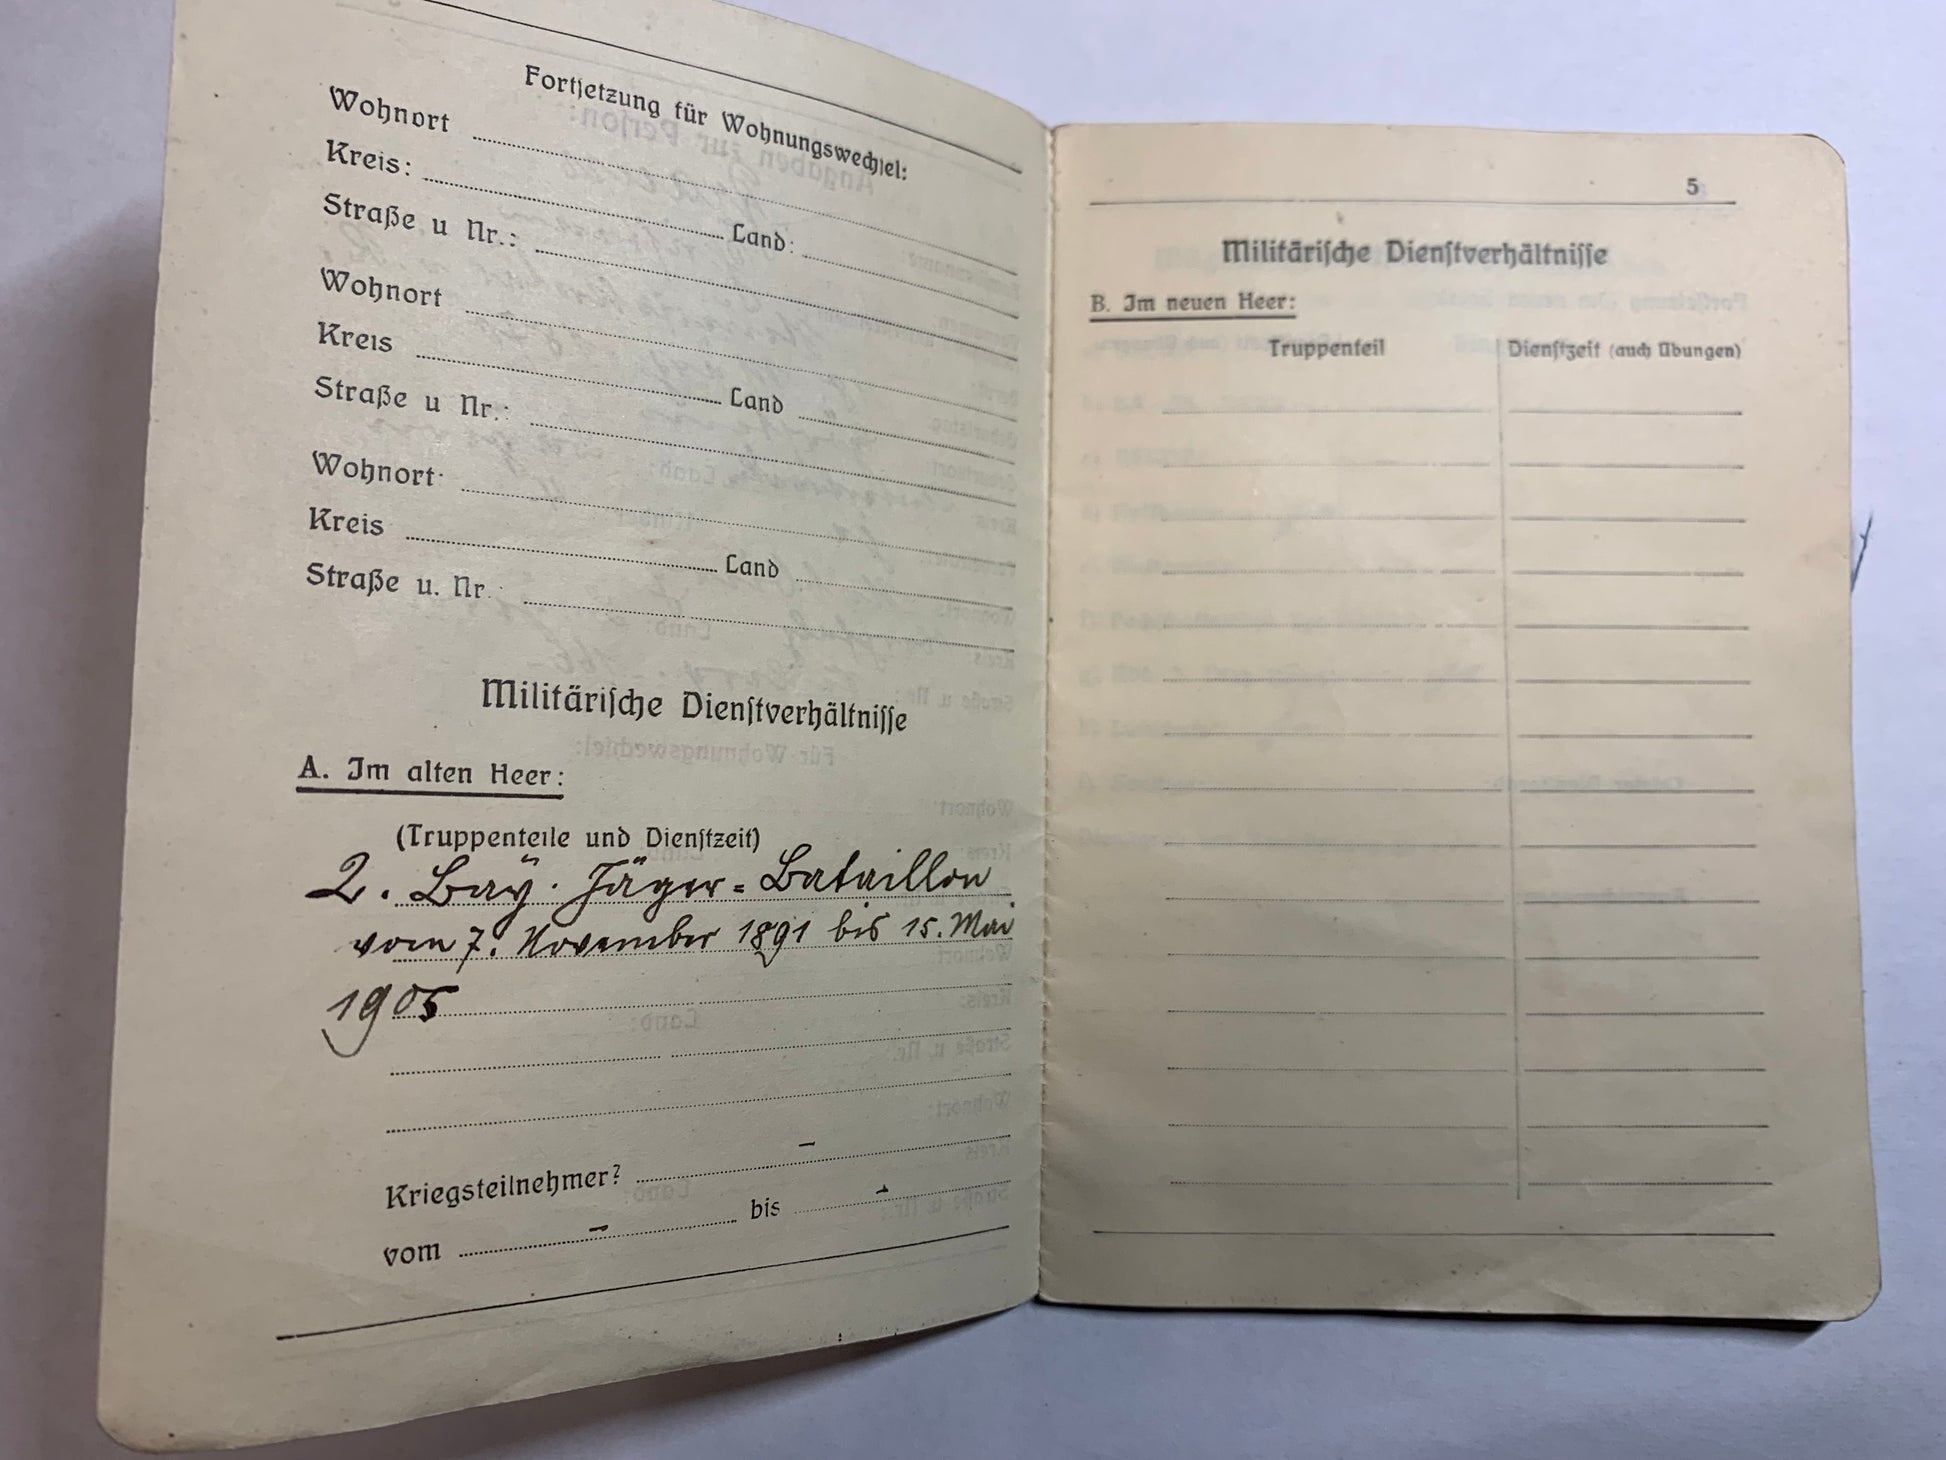 Fortsetzung für Wohnungswechsel:
Wohnort
Kreis: Land:
Straße u Nr.:
Wohnort
Kreis Land
Straße u Nr.:
Wohnort
Kreis Land
Straße u. Nr.
Militärische Dienstverhältnisse
A. Im alten Heer:
(Truppenteile und Dienstzeit)
2. Bay. Jäger=Bataillon
vom 7. November 1891 bis 15. Mai
1905
Kriegsteilnehmer? –
vom – bis –
5
Militärische Dienstverhältnisse
B. Im neuen Heer:
Truppenteil Dienstzeit (auch Übungen)